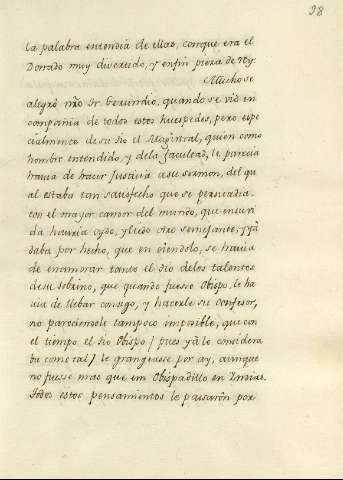 98
la palabra entendia de ellas, conque era el
Dorado muy divertido, y enfin pieza de Rey.
Mucho se
alegrò nr̃o Fr Gerundio, quando se viò en
compañia de todos estos huespedes, pero espe
cialmente de su tio el Magistral, quien como
hombre entendido, y dela facultad, le parecia
havia de hacer Justicia asu sermon, del qu
al estaba tan satisfecho que se persuadia
con el mayor candor del mundo, que en su vi
da havria oydo, y leido otro semejante, y yà
daba por hecho, que en oiendolo, se havia
de enamorar tanto el tio delos talentos
de su sobrino, que quando fuesse Obispo, le ha
via de llebar consigo, y hacerle su confesor,
no pareciendole tampoco imposible, que con
el tiempo el tio Obispo / pues yà le considera
ba como tal / le grangeasse por ay, aunque
no fuesse mas que um Obispadillo en Indias.
Todos estos pensamientos le pasaròn por